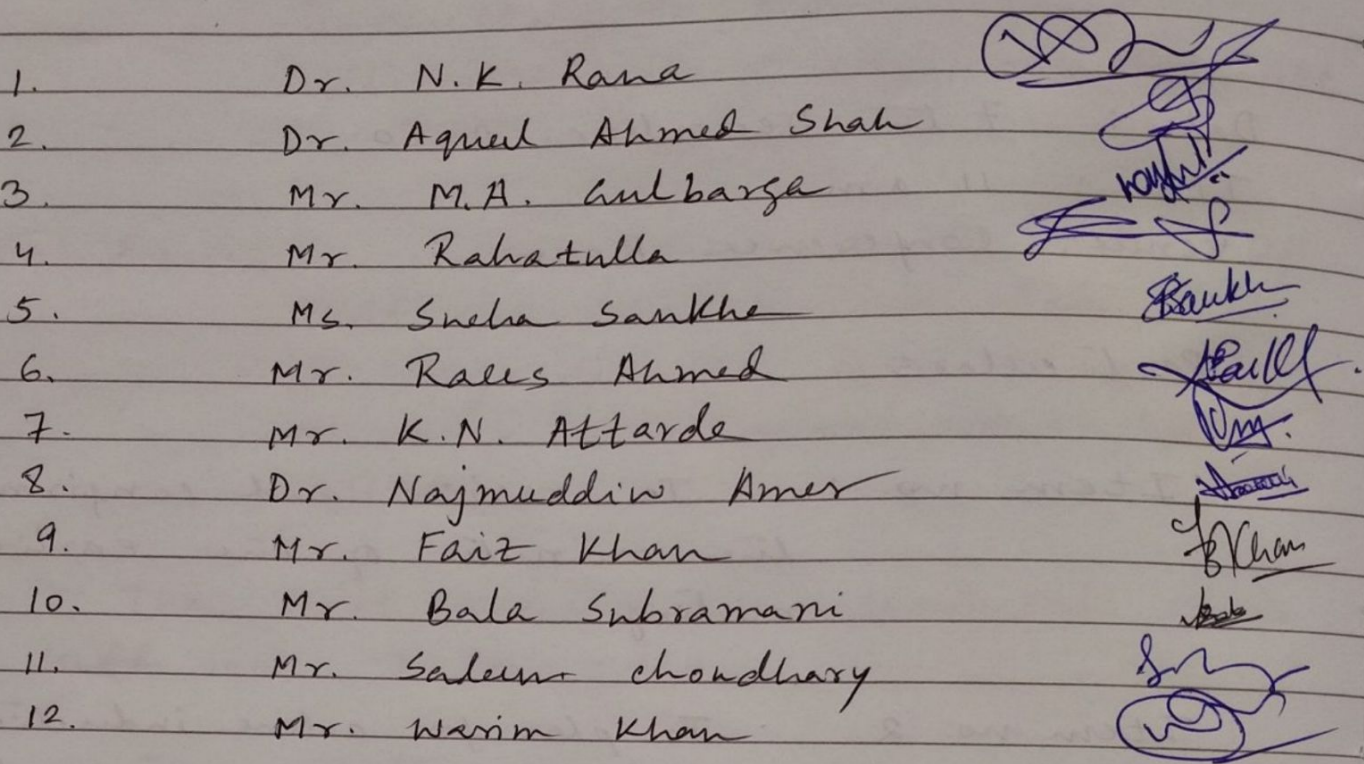 1. Dr. N.K. Rana
2. Dr. Aqueel Ahmed Shah
3. Mr. M.A. Gulbarga
4. Mr. Rahatulla
5. Ms. Sneha Sankhe
6. Mr. Raees Ahmed
7. Mr. K.N. Attarde
8. Dr. Najmuddin Amer
9. Mr. Faiz Khan
10. Mr. Bala Subramani
11. Mr. Saleem Choudhary
12. Mr. Wasim Khan